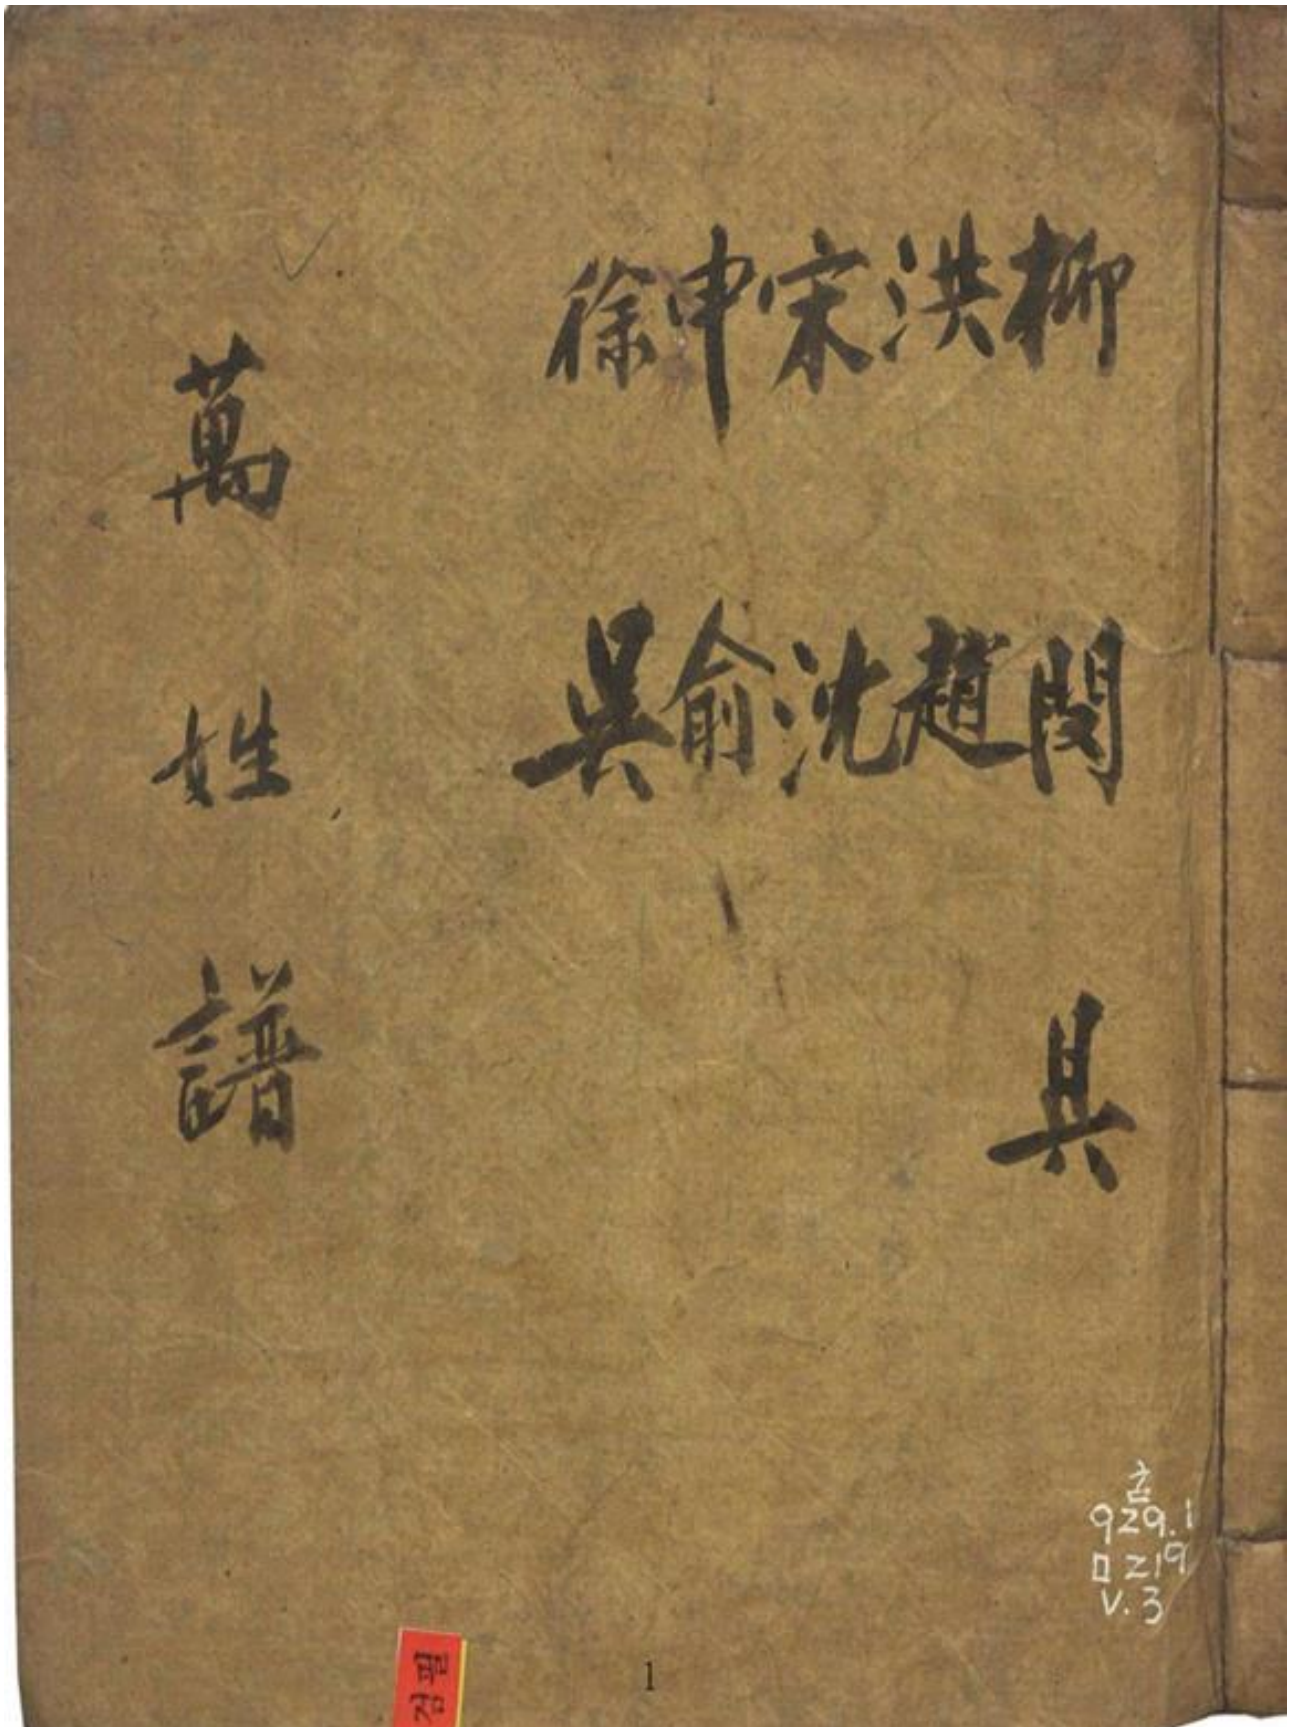 柳洪宋申徐
閔趙沈俞吳
具
萬姓譜
929.1
ㅁ219
V.3
검필
1